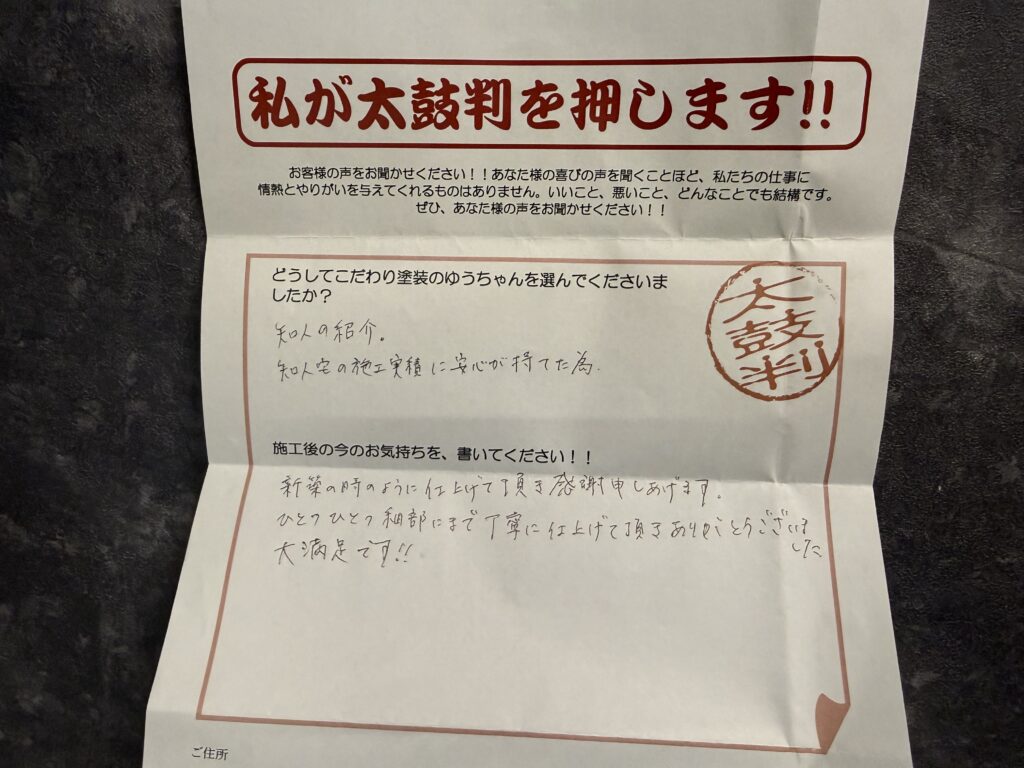 私が太鼓判を押します!!
お客様の声をお聞かせください！！あなた様の喜びの声を聞くことほど、私たちの仕事に
情熱とやりがいを与えてくれるものはありません。いいこと、悪いこと、どんなことでも結構です。
ぜひ、あなた様の声をお聞かせください！！
どうしてこだわり塗装のゆうちゃんを選んでくださいま
したか？
太鼓判
知人の紹介。
知人宅の施工実積に安心が持てた為.
施工後の今のお気持ちを、書いてください！！
新築の時のように仕上げて頂き感謝申しあげます。
ひとつひとつ細部にまで丁寧に仕上げて頂きありがとうございま
した
大満足です!!
ご住所